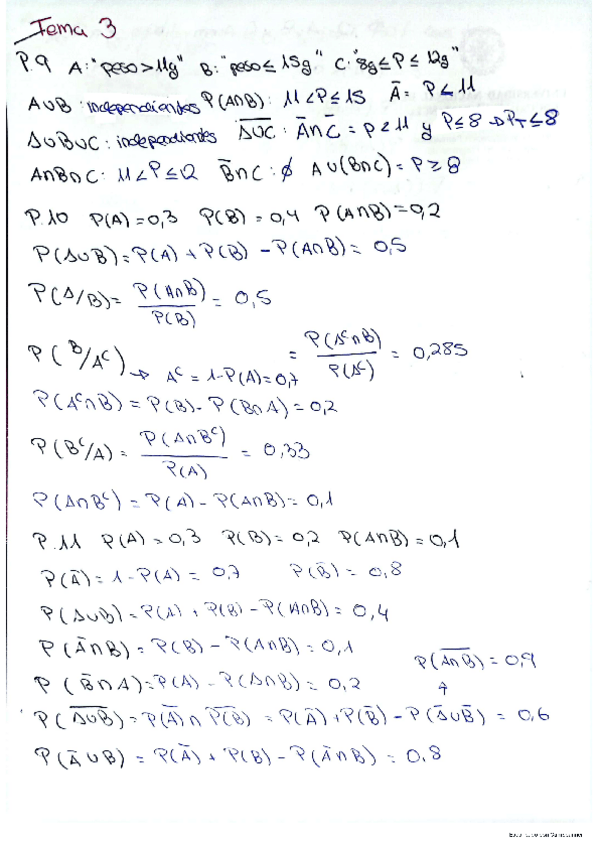 Tema 3
P.9 A: "peso > 11g" B: "peso ≤ 15g" C: "8g ≤ P ≤ 12g"
A∪B: independientes P(A∩B): 11 < P ≤ 15 Ā = P ≤ 11
A∪B∪C: independientes \overline{A∪C}: Ā∩C̄ = P ≤ 11 y P ≤ 8 → P_T ≤ 8
A∩B∩C: 11 < P ≤ 12 B̄∩C: ∅ A∪(B∩C) = P ≥ 8
P.10 P(A) = 0,3 P(B) = 0,4 P(A∩B) = 0,2
P(A∪B) = P(A) + P(B) - P(A∩B) = 0,5
P(A/B) = P(A∩B) / P(B) = 0,5
P(B/Aᶜ) → Aᶜ = 1-P(A) = 0,7 = P(Aᶜ∩B) / P(Aᶜ) = 0,285
P(Aᶜ∩B) = P(B) - P(B∩A) = 0,2
P(Bᶜ/A) = P(A∩Bᶜ) / P(A) = 0,33
P(A∩Bᶜ) = P(A) - P(A∩B) = 0,1
P.11 P(A) = 0,3 P(B) = 0,2 P(A∩B) = 0,1
P(Ā) = 1 - P(A) = 0,7 P(B̄) = 0,8
P(A∪B) = P(A) + P(B) - P(A∩B) = 0,4
P(Ā∩B) = P(B) - P(A∩B) = 0,1
P(\overline{A∩B}) = 0,9
P(B̄∩A) = P(A) - P(A∩B) = 0,2 ↑
P(\overline{A∪B}) = P(Ā)∩P(B̄) = P(Ā) + P(B̄) - P(Ā∪B̄) = 0,6
P(Ā∪B) = P(Ā) + P(B) - P(Ā∩B) = 0.8